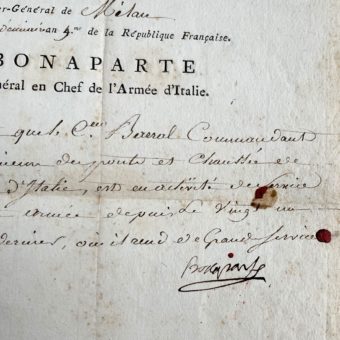 er-Général de Milan
an 4.me de la République Française.
BONAPARTE
néral en Chef de l'Armée d'Italie.
que le C.en Commandant
des ponts et Chaussée de
d'Italie, est en activité de Service
armée depuis le Vingt un
dernier, où il rend de Grands Services
Bonaparte